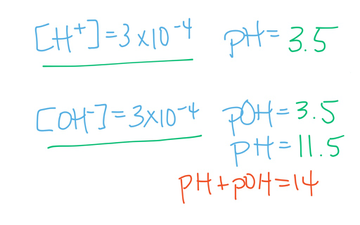 [H⁺]=3×10⁻⁴ pH=3.5
[OH⁻]=3×10⁻⁴ pOH=3.5
pH=11.5
pH+pOH=14